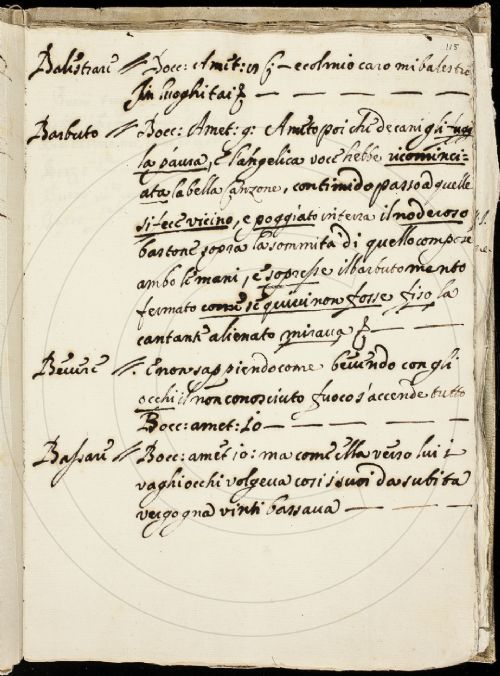 115
Balestrare // Bocc: Amet: 9 — e col mio caro mi balestrò
In luoghi tai —
Barbuto // Bocc: Amet: 9: Ameto poi che de cani gli fuggì
la paura, e l'angelica voce hebbe ricominci=
ata la bella canzone, con timido passo à quelle
si fece vicino, e poggiato in terra il noderoso
bastone, sopra la sommità di quello compose
ambo le mani, e sopresse il barbuto mento
fermato come se quivi non fosse fiso la
cantante alienato mirava —
Bevere //. E non sappiendo come bevendo con gli
occhi il non conosciuto fuoco s'accende tutto
Bocc: amet: 10 —
Bassare // Bocc: amet 10: ma come ella verso lui i
vaghi occhi volgeva così i suoi da subita
vergogna vinti bassava —